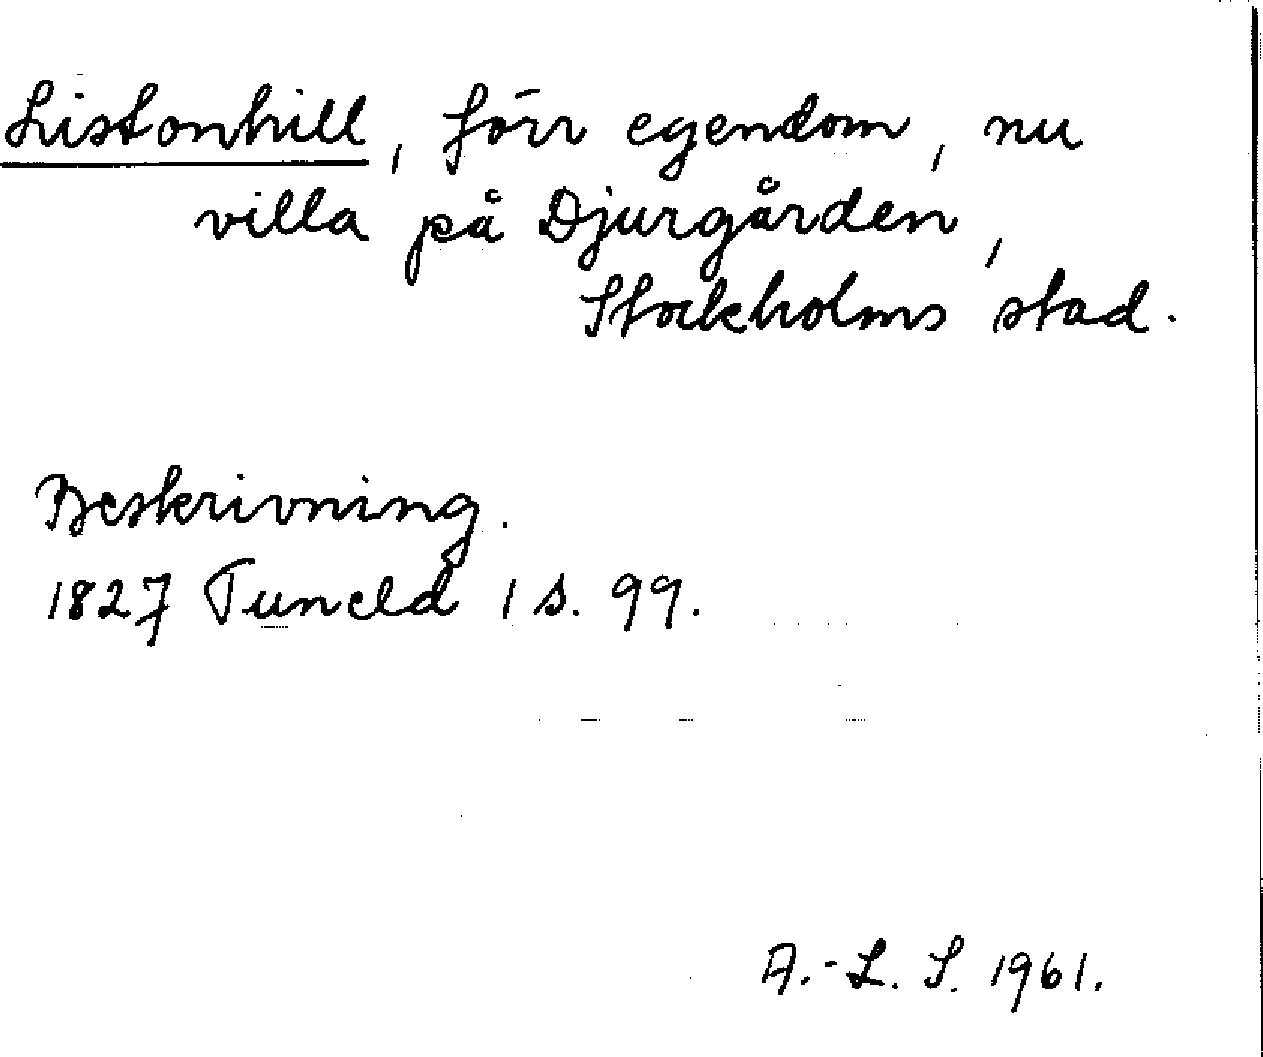 Listonhill, förr egendom, nu
villa på Djurgården,
Stockholms stad.
Beskrivning.
1827 Tuneld 1 s. 99.
A.-L. S. 1961.